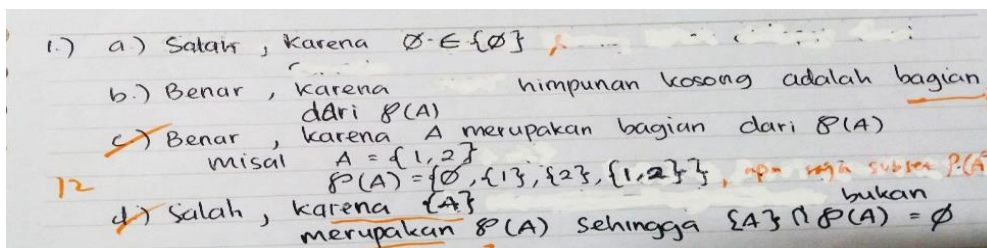 1.) a.) Salah, karena ∅ ∈ {∅}
b.) Benar, karena himpunan kosong adalah bagian
dari ℘(A)
c.) Benar, karena A merupakan bagian dari ℘(A)
misal A = {1,2}
℘(A) = {∅, {1}, {2}, {1,2}}, apa saja subset
12
d.) Salah, karena {A} bukan
merupakan ℘(A) sehingga {A} ∩ ℘(A) = ∅